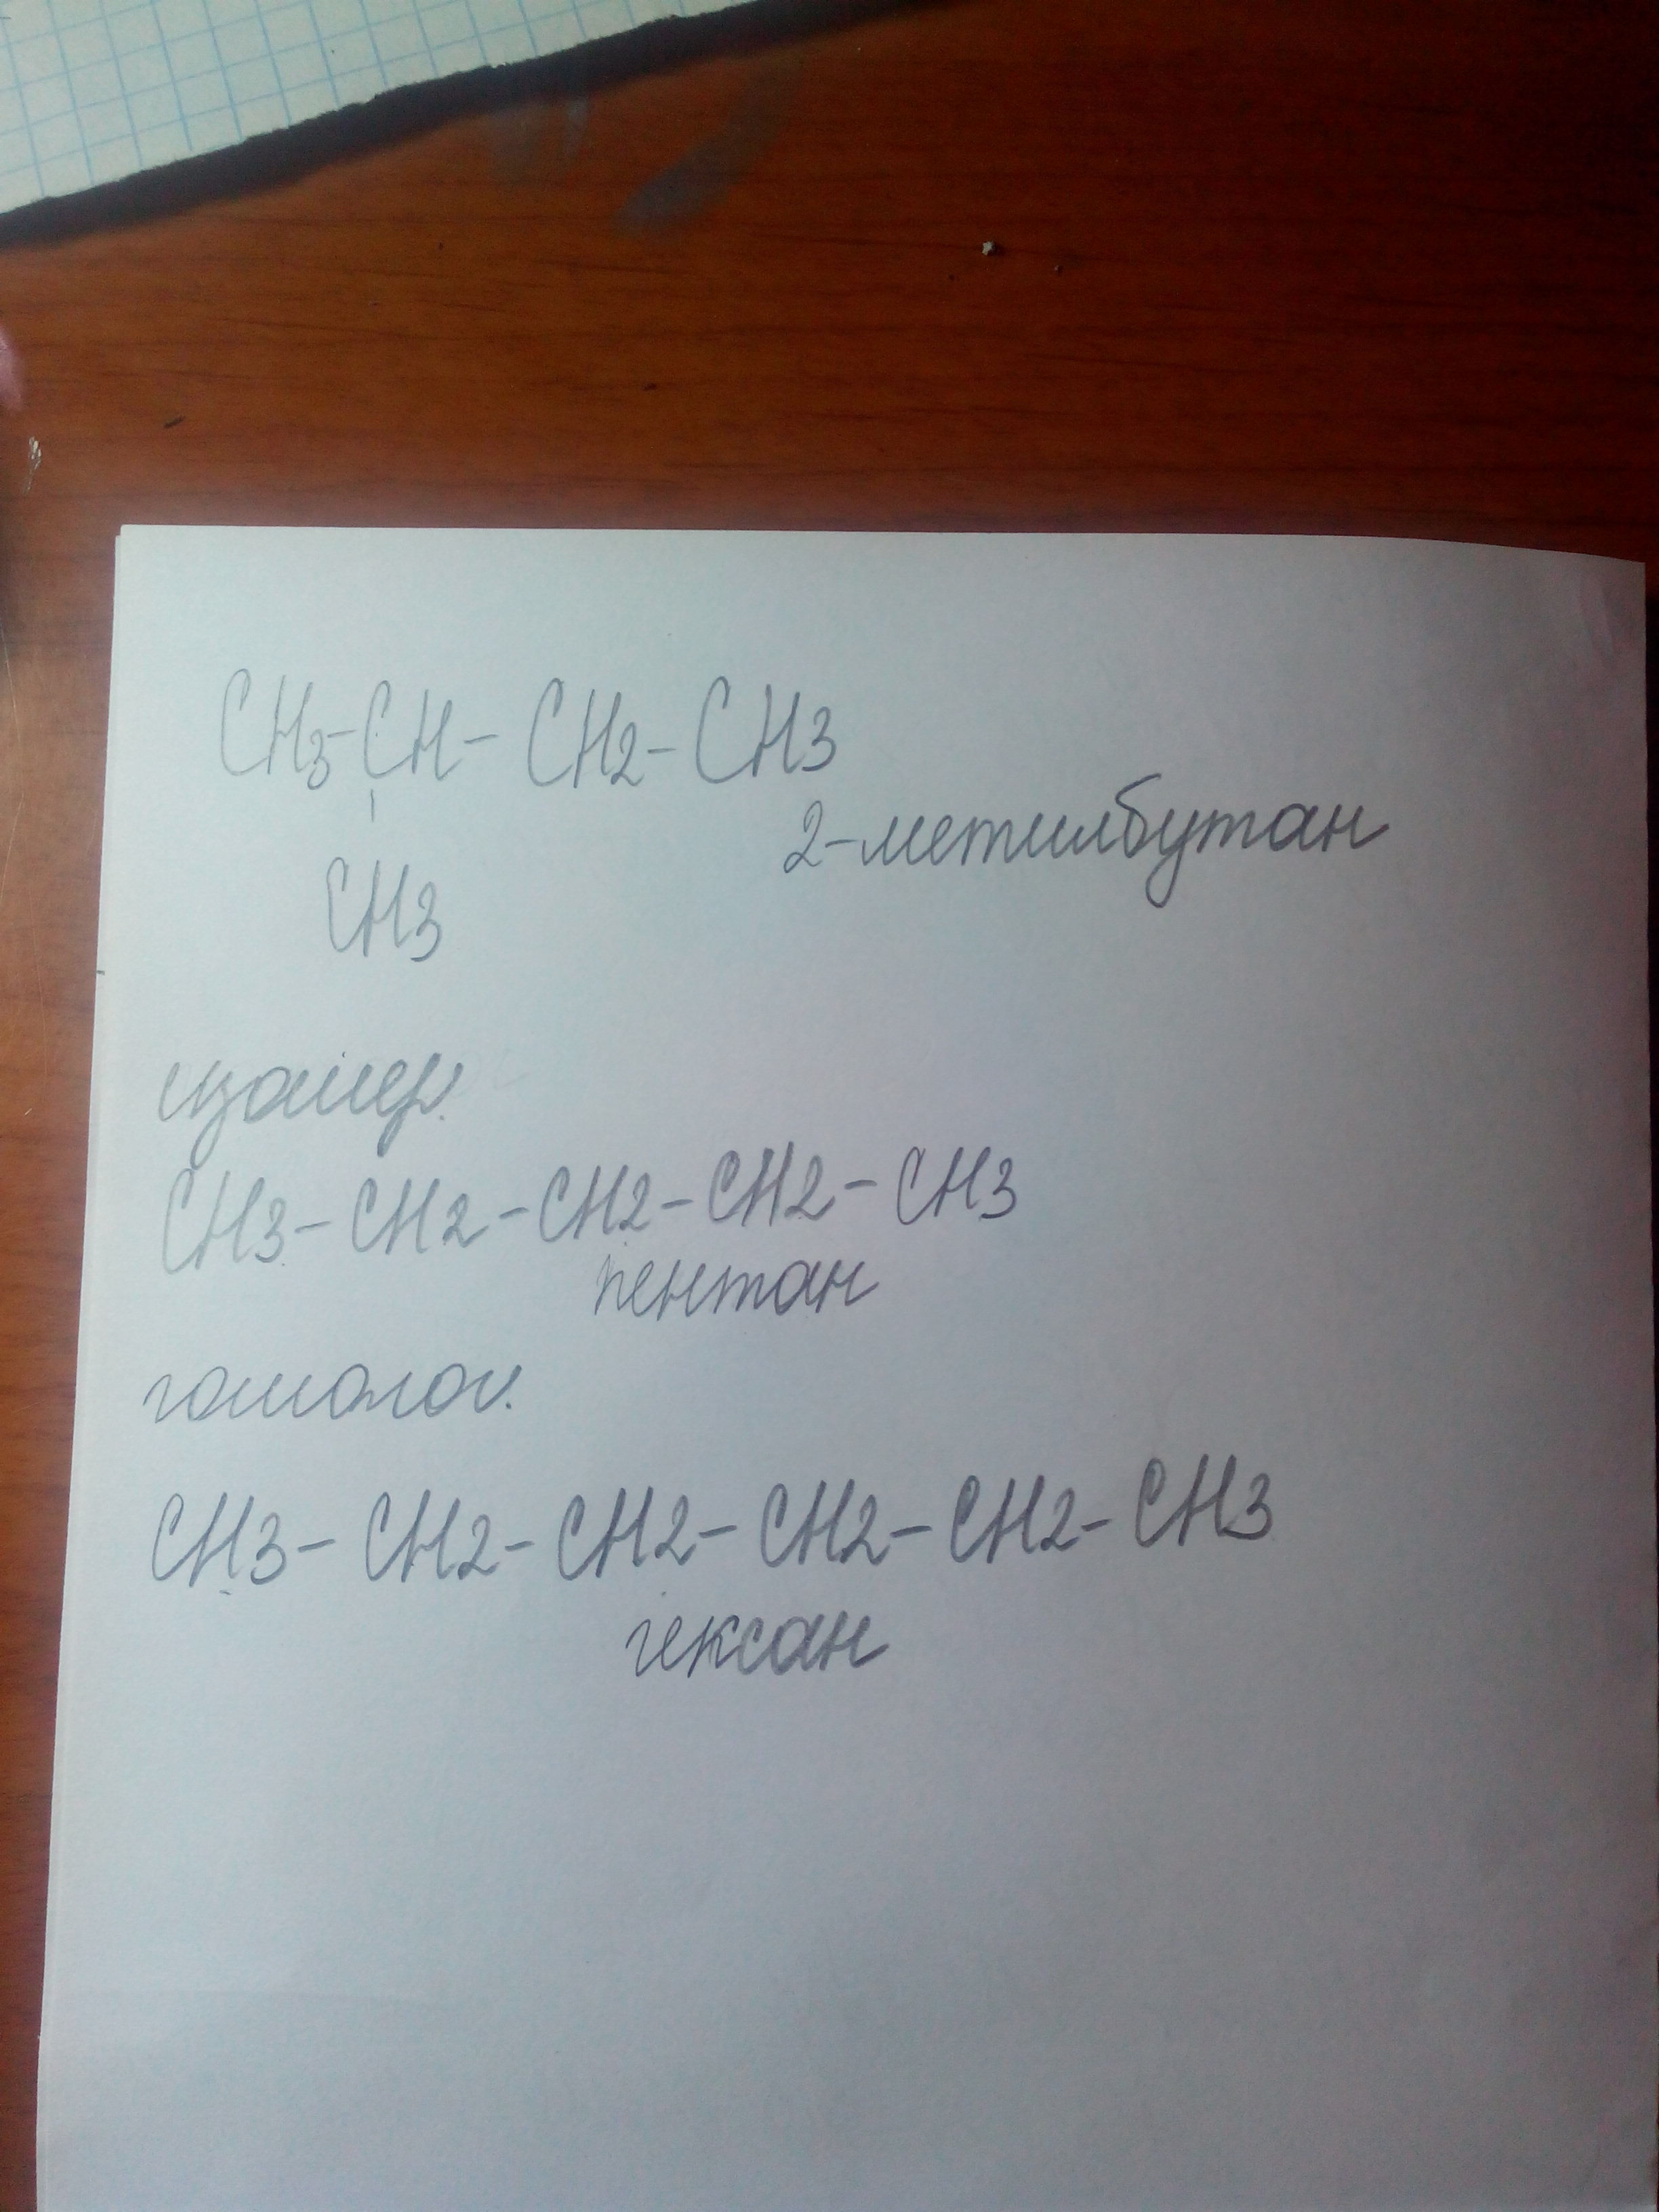 CH3-CH-CH2-CH3
2-метилбутан
CH3
изомер.
CH3-CH2-CH2-CH2-CH3
пентан
гомолог.
CH3-CH2-CH2-CH2-CH2-CH3
гексан